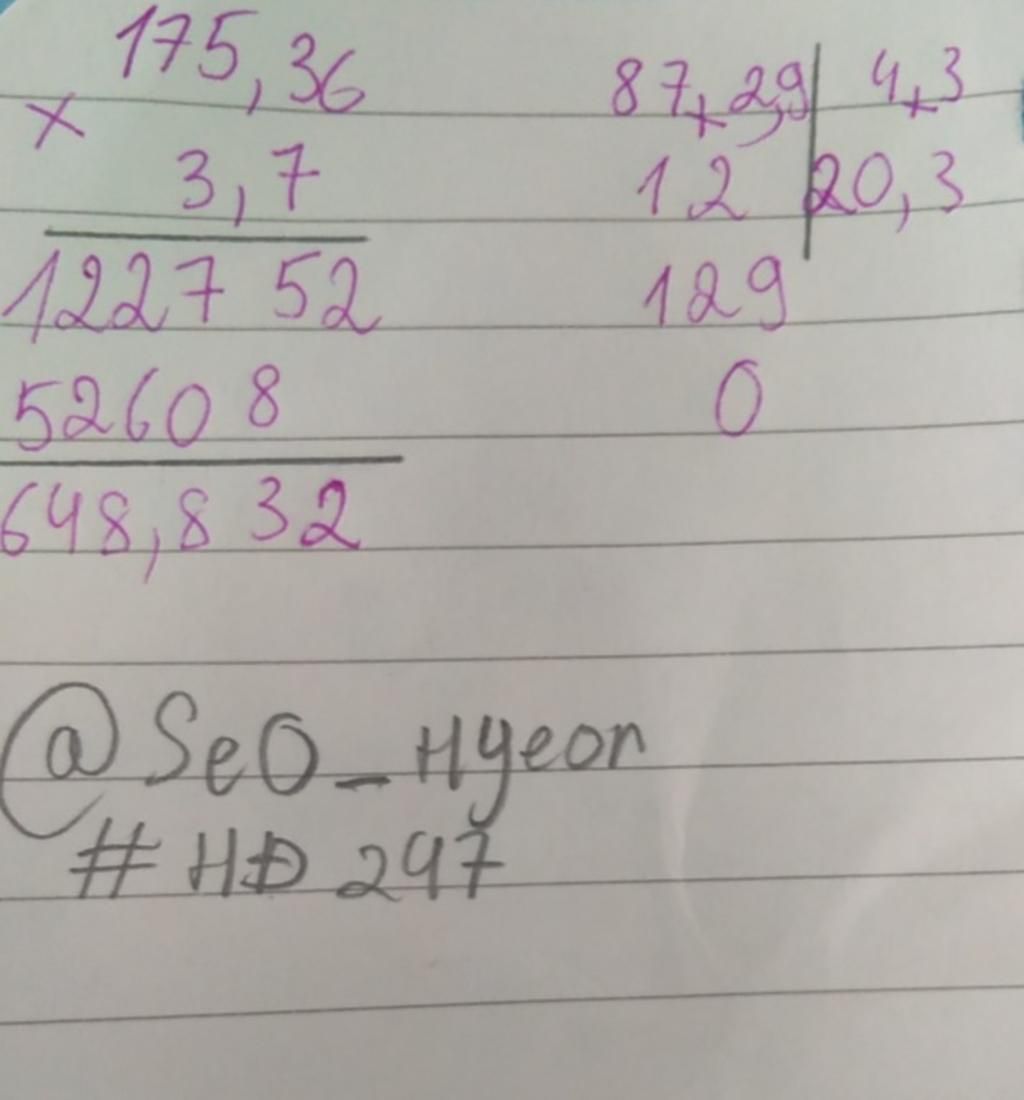 175,36
×
3,7
122752
52608
648,832
87,29 4,3
12 20,3
129
0
@SeO_Hyeon
#HĐ297